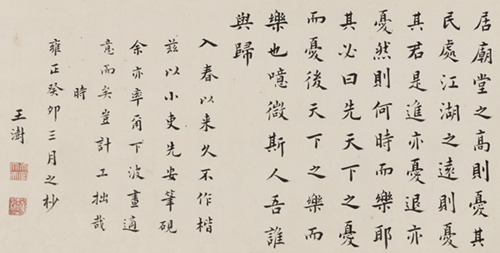 居廟堂之高則憂其
民處江湖之遠則憂
其君是進亦憂退亦
憂然則何時而樂耶
其必曰先天下之憂
而憂後天下之樂而
樂也噫微斯人吾誰
與歸
入春以來久不作楷
茲以小吏先安筆硯
余亦率爾下波畫適
意而矣豈計工拙哉
時
雍正癸卯三月之杪
王澍